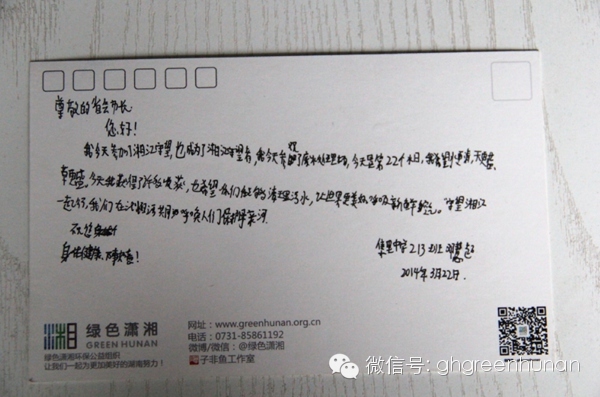 尊敬的省长:
您好!
我今天参加了湘江守望,也成为了湘江守望者,我今天参观了污水处理场,今天是第22个水日,我希望水更清,天更蓝
草更盛。今天我获得了许多收获,也希望人们能够清理污水,让世界更美好 呼吸新鲜空气。守望湘江
一起行,我们在 呼唤人们保护母亲河。
祝您
身体健康、万事如意!
集里中学213班 邓慧
2014年3月22日.
湘 绿色潇湘
GREEN HUNAN
绿色潇湘环保公益组织
让我们一起为更加美好的湖南努力!
网址:www.greenhunan.org.cn
电话:0731-85861192
微博/微信:@绿色潇湘
子非鱼工作室
微信号: ghgreenhunan